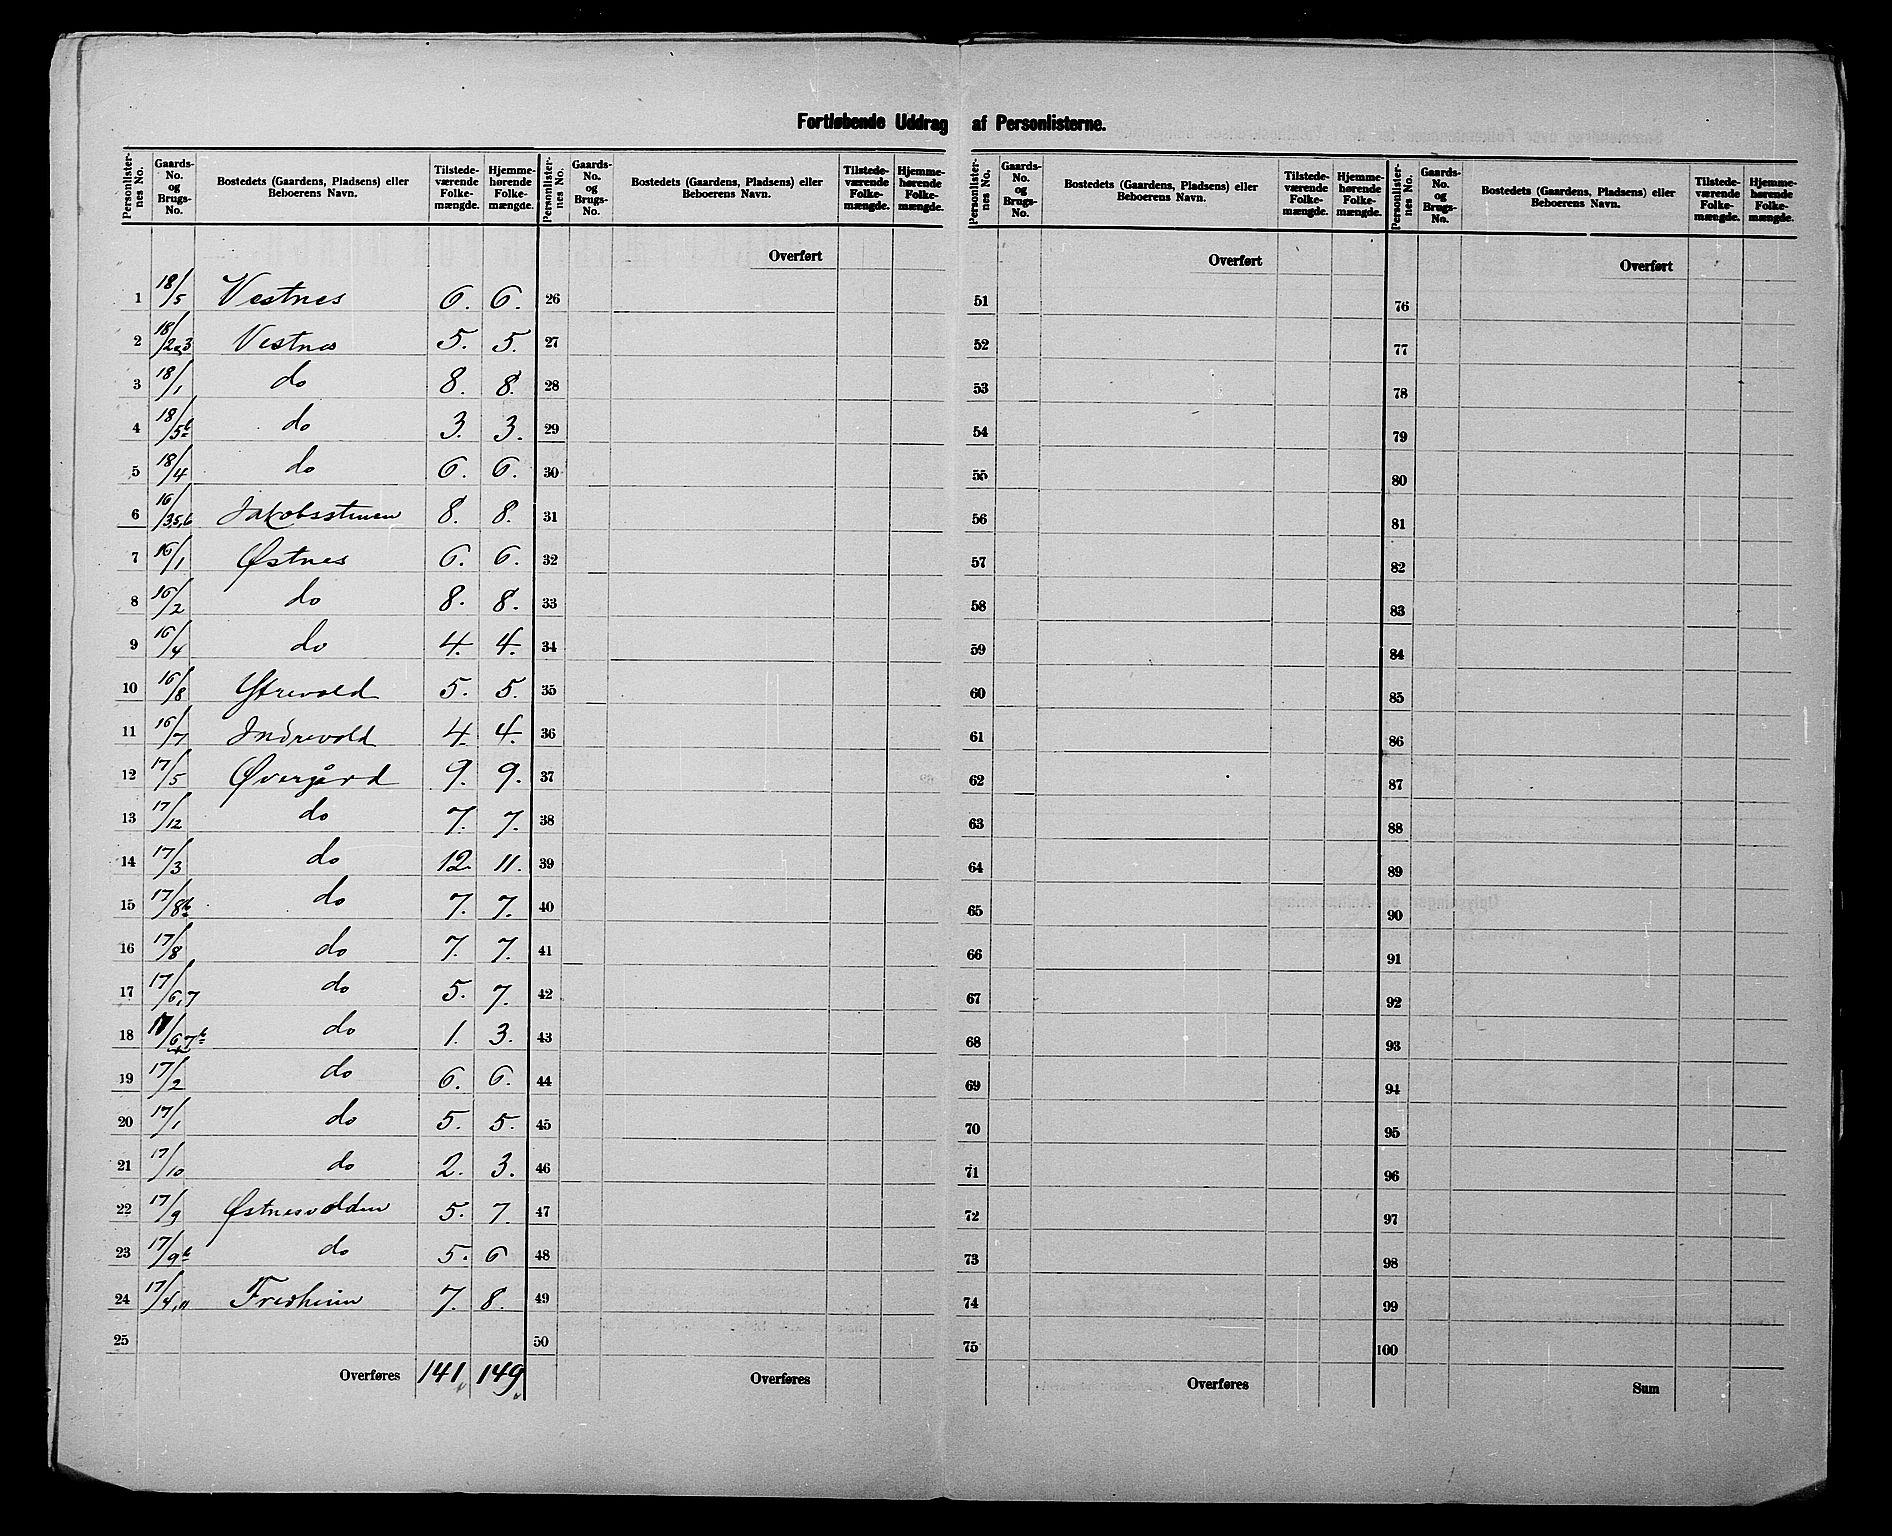 Fortløbende Uddrag af Personlisterne.
Personlisternes No. Gaards-No. og Brugs-No. Bostedets (Gaardens, Pladsens) eller Beboerens Navn. Tilstedeværende Folkemængde. Hjemmehørende Folkemængde.
1 18/5 Vestnes 6. 6.
2 18/2 3 Vestnes 5. 5.
3 18/1 do 8. 8.
4 18/5b do 3. 3.
5 18/4 do 6. 6.
6 16/3,5,6 Jakobsstuen 8. 8.
7 16/1 Østnes 6. 6.
8 16/2 do 8. 8.
9 16/4 do 4. 4.
10 16/8 Ytrevold 5. 5.
11 16/7 Indrevold 4. 4.
12 17/5 Øvergård 9. 9.
13 17/12 do 7. 7.
14 17/3 do 12. 11.
15 17/8b do 7. 7.
16 17/8 do 7. 7.
17 17/6,7 do 5. 7.
18 17/6,7b do 1. 3.
19 17/2 do 6. 6.
20 17/1 do 5. 5.
21 17/10 do 2. 3.
22 17/9 Østnesvolden 5. 7.
23 17/9b do 5. 6
24 17/4,11 Fredheim 7. 8.
25
Overføres 141 149
Personlisternes No. Gaards-No. og Brugs-No. Bostedets (Gaardens, Pladsens) eller Beboerens Navn. Tilstedeværende Folkemængde. Hjemmehørende Folkemængde.
Overført
26
27
28
29
30
31
32
33
34
35
36
37
38
39
40
41
42
43
44
45
46
47
48
49
50
Overføres
Personlisternes No. Gaards-No. og Brugs-No. Bostedets (Gaardens, Pladsens) eller Beboerens Navn. Tilstedeværende Folkemængde. Hjemmehørende Folkemængde.
Overført
51
52
53
54
55
56
57
58
59
60
61
62
63
64
65
66
67
68
69
70
71
72
73
74
75
Overføres
Personlisternes No. Gaards-No. og Brugs-No. Bostedets (Gaardens, Pladsens) eller Beboerens Navn. Tilstedeværende Folkemængde. Hjemmehørende Folkemængde.
Overført
76
77
78
79
80
81
82
83
84
85
86
87
88
89
90
91
92
93
94
95
96
97
98
99
100
Sum